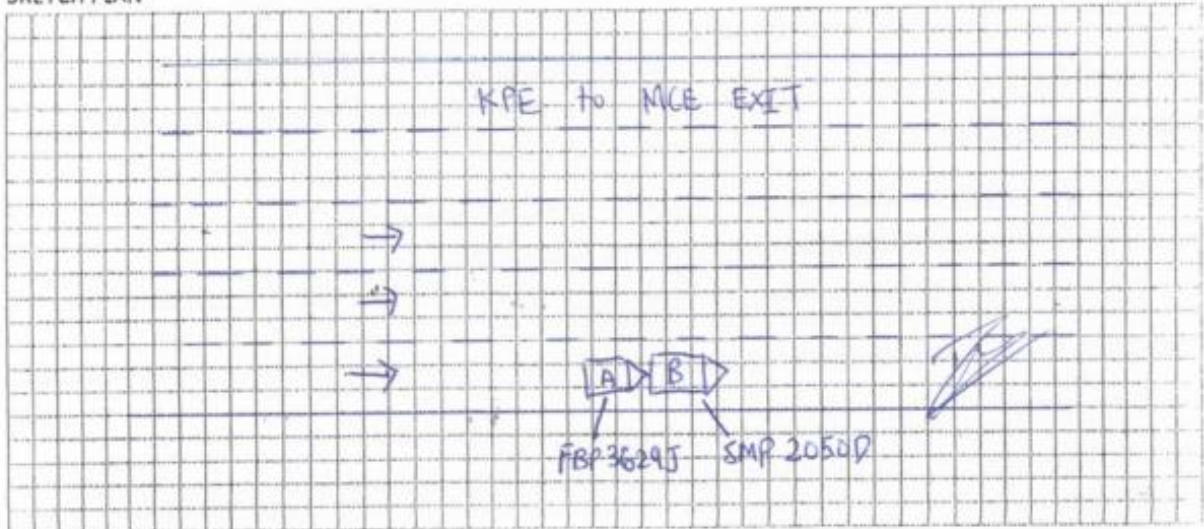 SKETCH PLAN
KPE to MCE EXIT
A B
FBP3629J SMP2050D